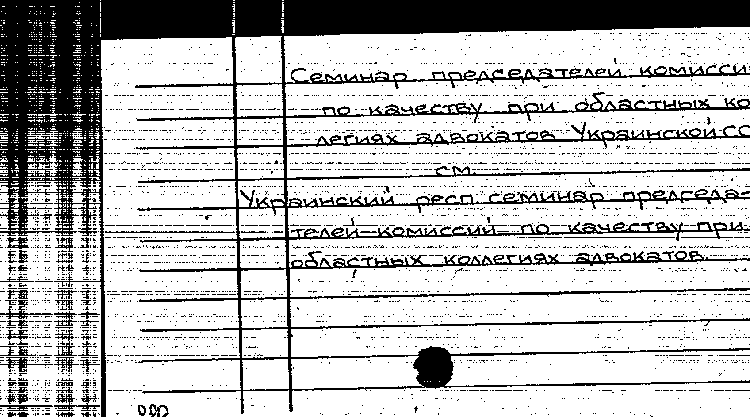 Семинар председателей комисси
по качеству при областных ко
легиях адвокатов Украинской СС
см.
Украинский респ семинар председа-
телей комиссий по качеству при
областных коллегиях адвокатов.